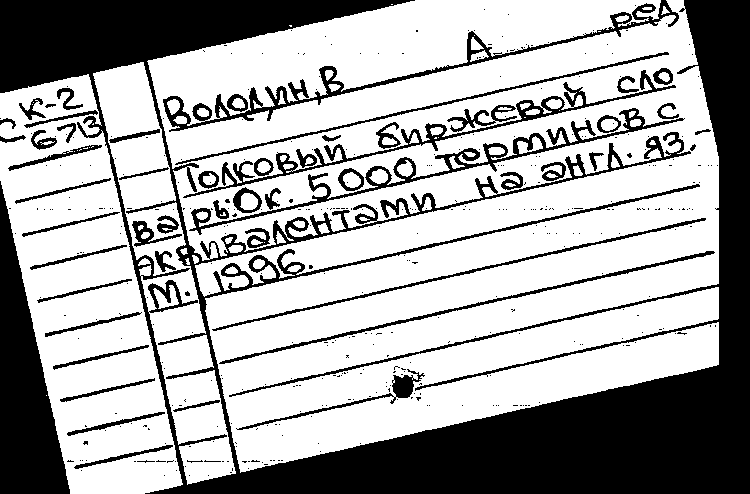 К-2
С 6713
Володин, В А ред.
Толковый биржевой сло-
варь: Ок. 5000 терминов с
эквивалентами на англ. яз.-
М., 1996.